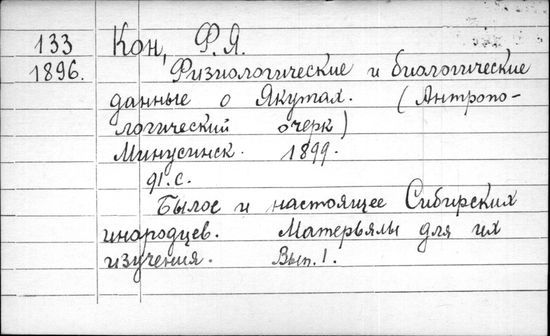 133
1896.
Кон, Ф. Я.
Физиологические и биологические
данные о Якутах. (Антропо-
логический очерк)
Минусинск. 1899.
91.с.
Былое и настоящее Сибирских
инородцев. Матерьялы для их
изучения. Вып. 1.